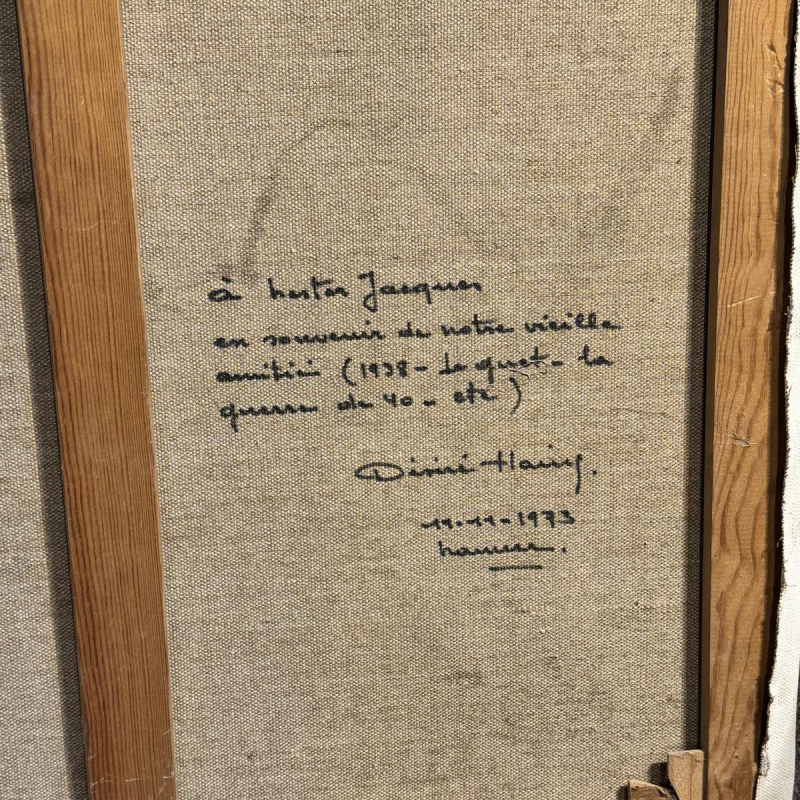 à Nestor Jacques
en souvenir de notre vieille
amitié (1938 - Le guet - la
guerre de 40 - etc)
Désiré Haine.
11-11-1973
Namur.